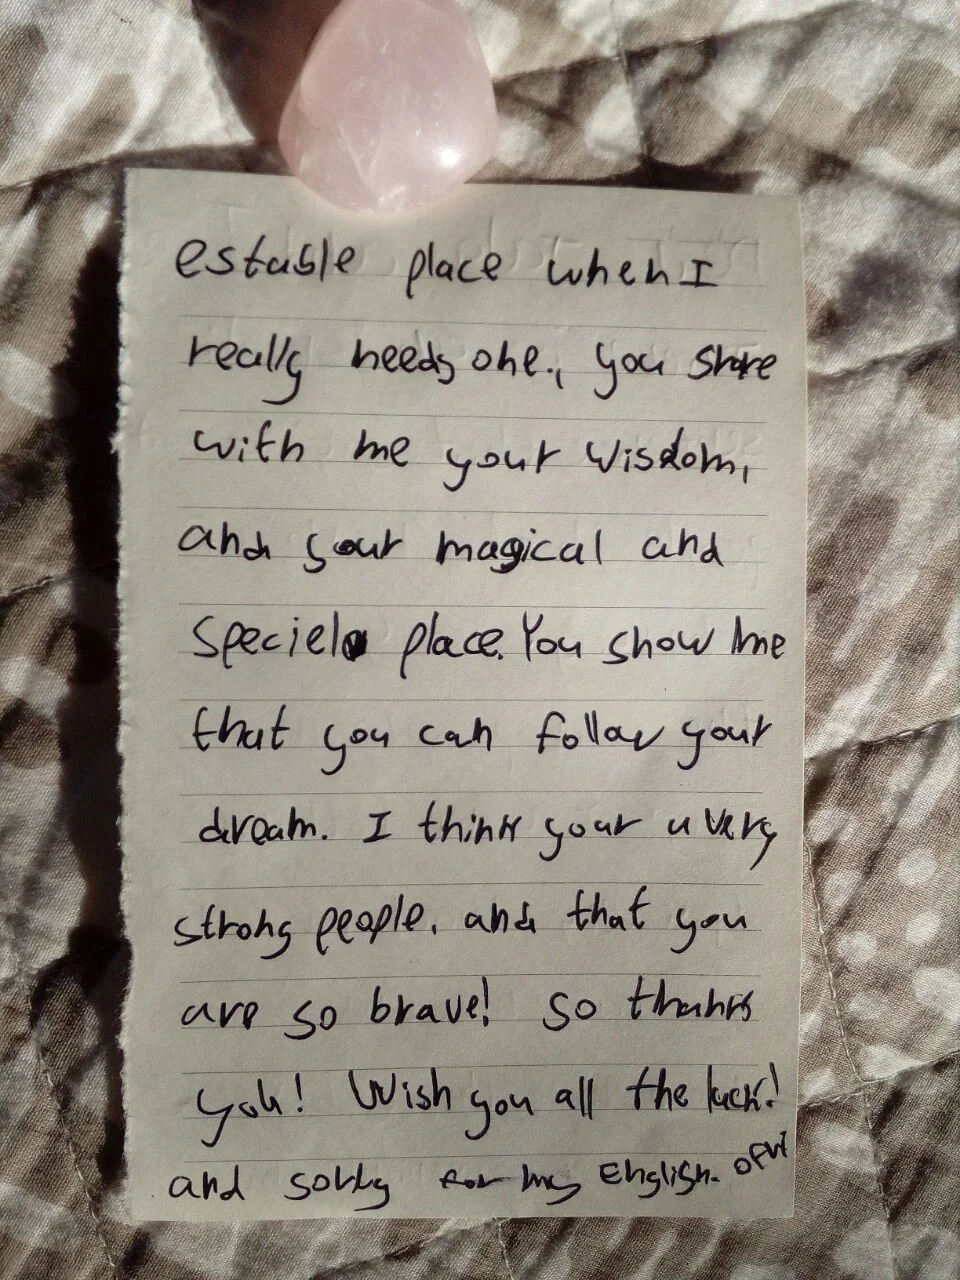 estable place when I
really needs one., you share
with me your wisdom,
and your magical and
speciel place. You show me
that you can follow your
dream. I think your a very
strong people. and that you
are so brave! so thanks
you! Wish you all the luck!
and sorry for my English. ofri